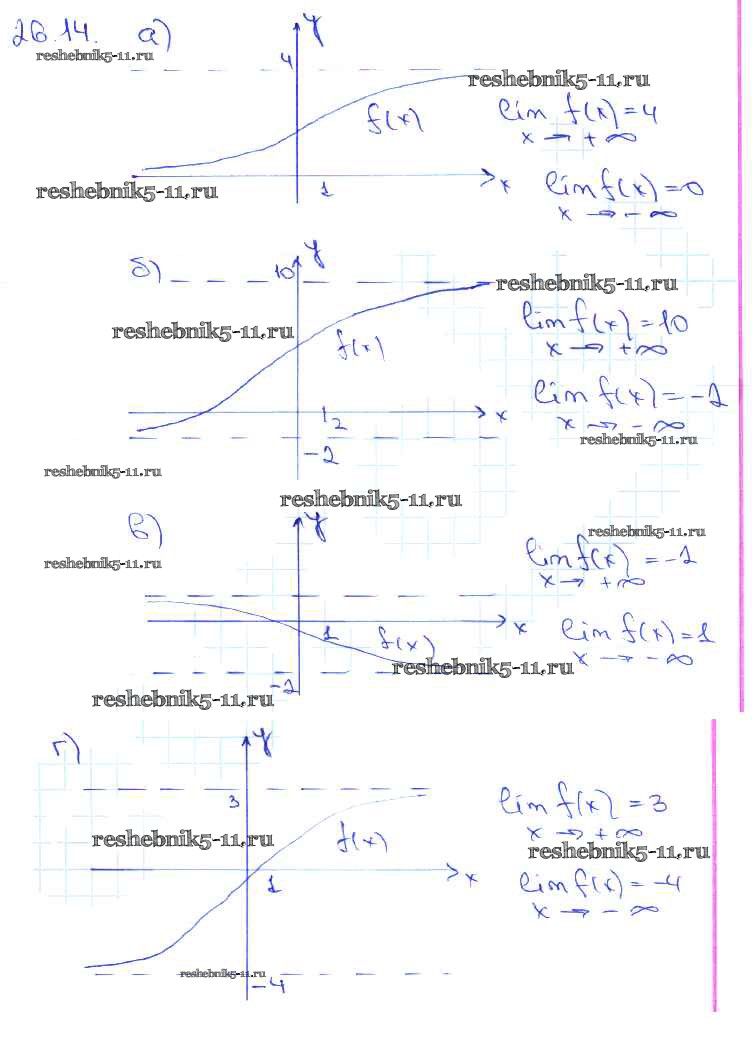 26.14. а)
reshebnik5-11.ru
y
4
reshebnik5-11.ru
f(x)
lim f(x)=4
x → +∞
reshebnik5-11.ru
1
x
lim f(x)=0
x → -∞
б)
10
y
reshebnik5-11.ru
reshebnik5-11.ru
f(x)
lim f(x)=10
x → +∞
lim f(x)=-2
x → -∞
2
x
reshebnik5-11.ru
-2
reshebnik5-11.ru
reshebnik5-11.ru
в)
y
reshebnik5-11.ru
reshebnik5-11.ru
lim f(x)=-2
x → +∞
1
f(x)
x
lim f(x)=1
x → -∞
reshebnik5-11.ru
-2
reshebnik5-11.ru
г)
y
3
lim f(x)=3
x → +∞
reshebnik5-11.ru
f(x)
reshebnik5-11.ru
1
x
lim f(x)=-4
x → -∞
reshebnik5-11.ru
-4